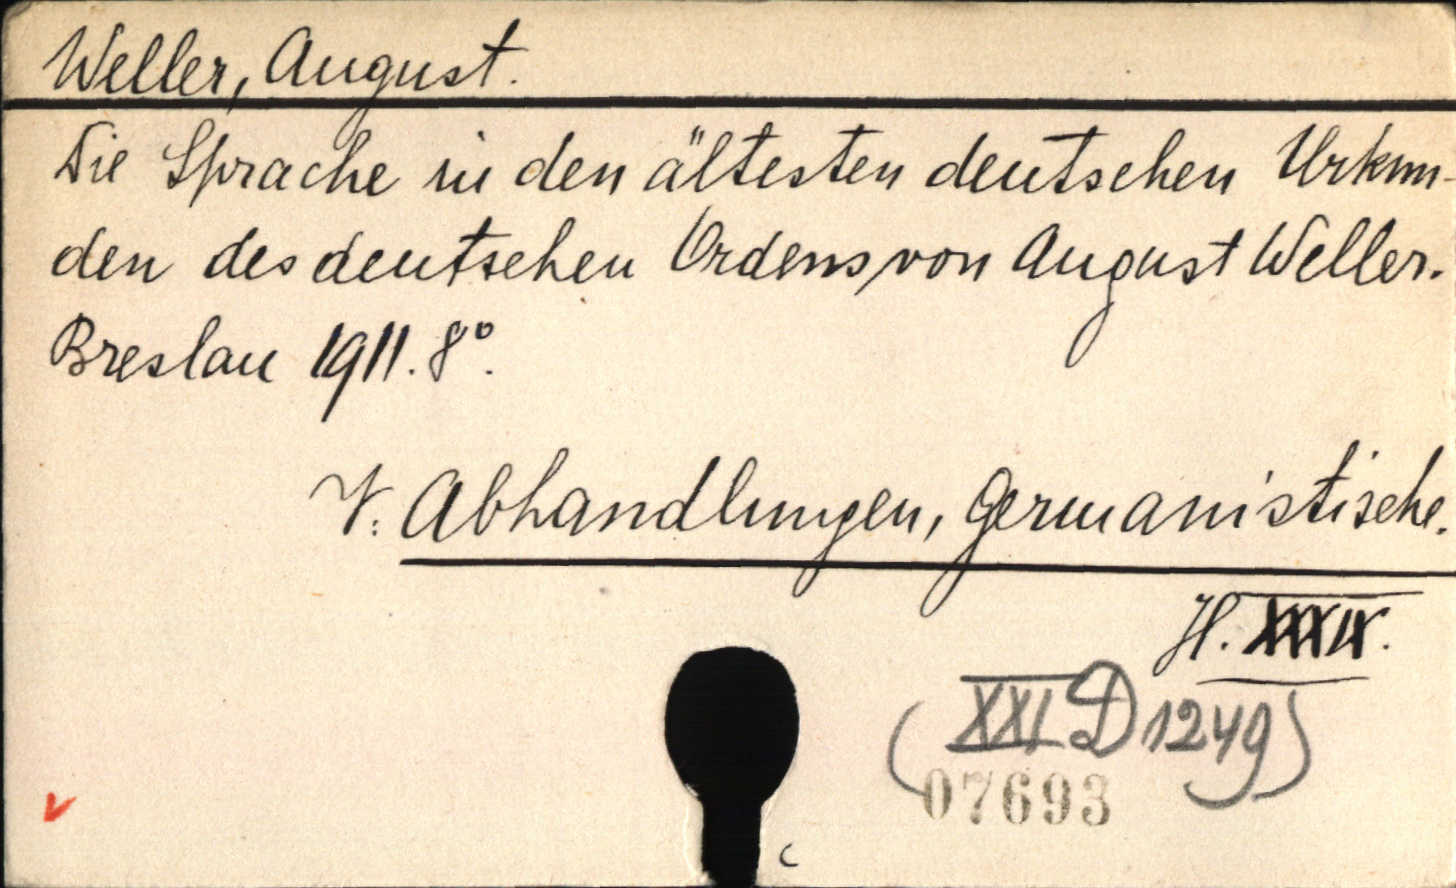 Weller, August.
Die Sprache in den ältesten deutschen Urkun-
den des deutschen Ordens, von August Weller.
Breslau 1911. 8°.
V. Abhandlungen, Germanistische.
H. XXXIX.
(XXI D 1249)
07693
v
c